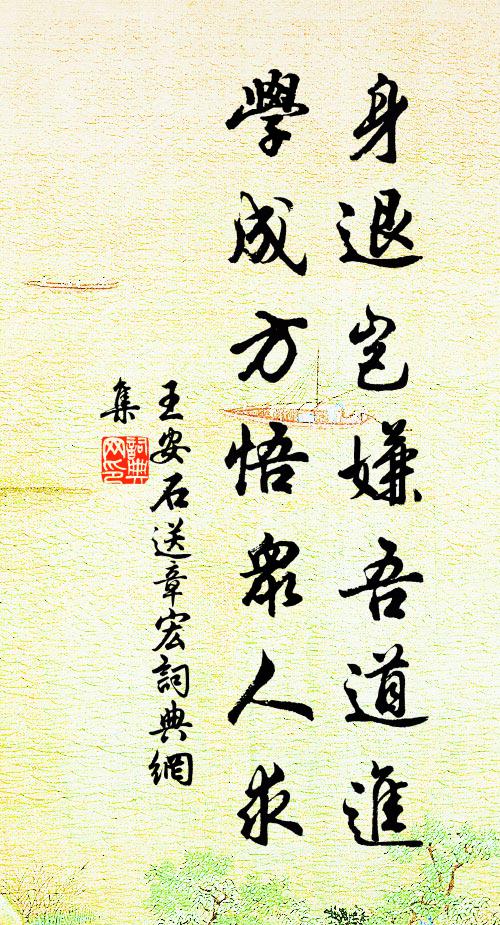 身退岂嫌吾道進
學成方悟眾人求
王安石送章宏詞典網
集
詞典
网印